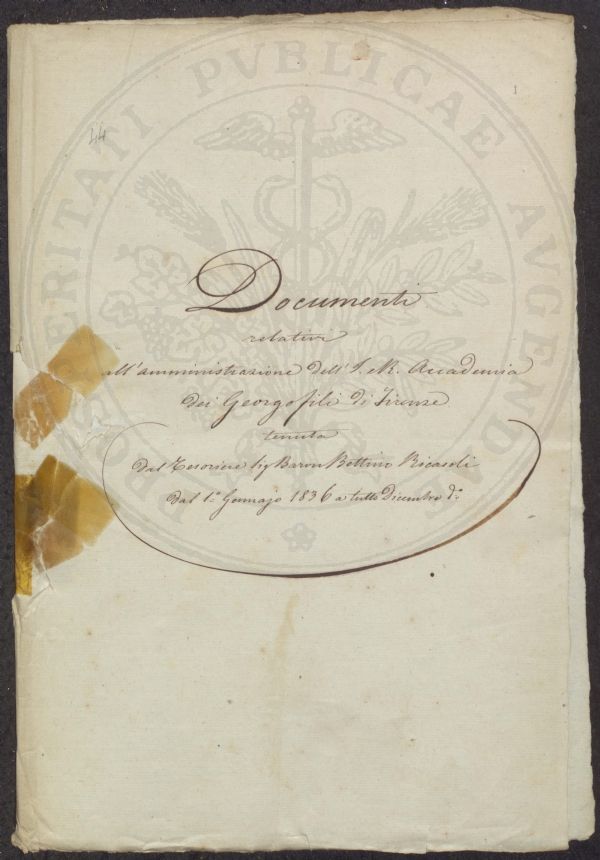 1
44
PROSPERITATI PVBLICAE AVGENDAE
Documenti
relativi
all'amministrazione dell'I. e R. Accademia
dei Georgofili di Firenze
tenuta
dal Tesoriere Sig Baron Bettino Ricasoli
dal 1.º Gennajo 1836 a tutto Dicembre d.º